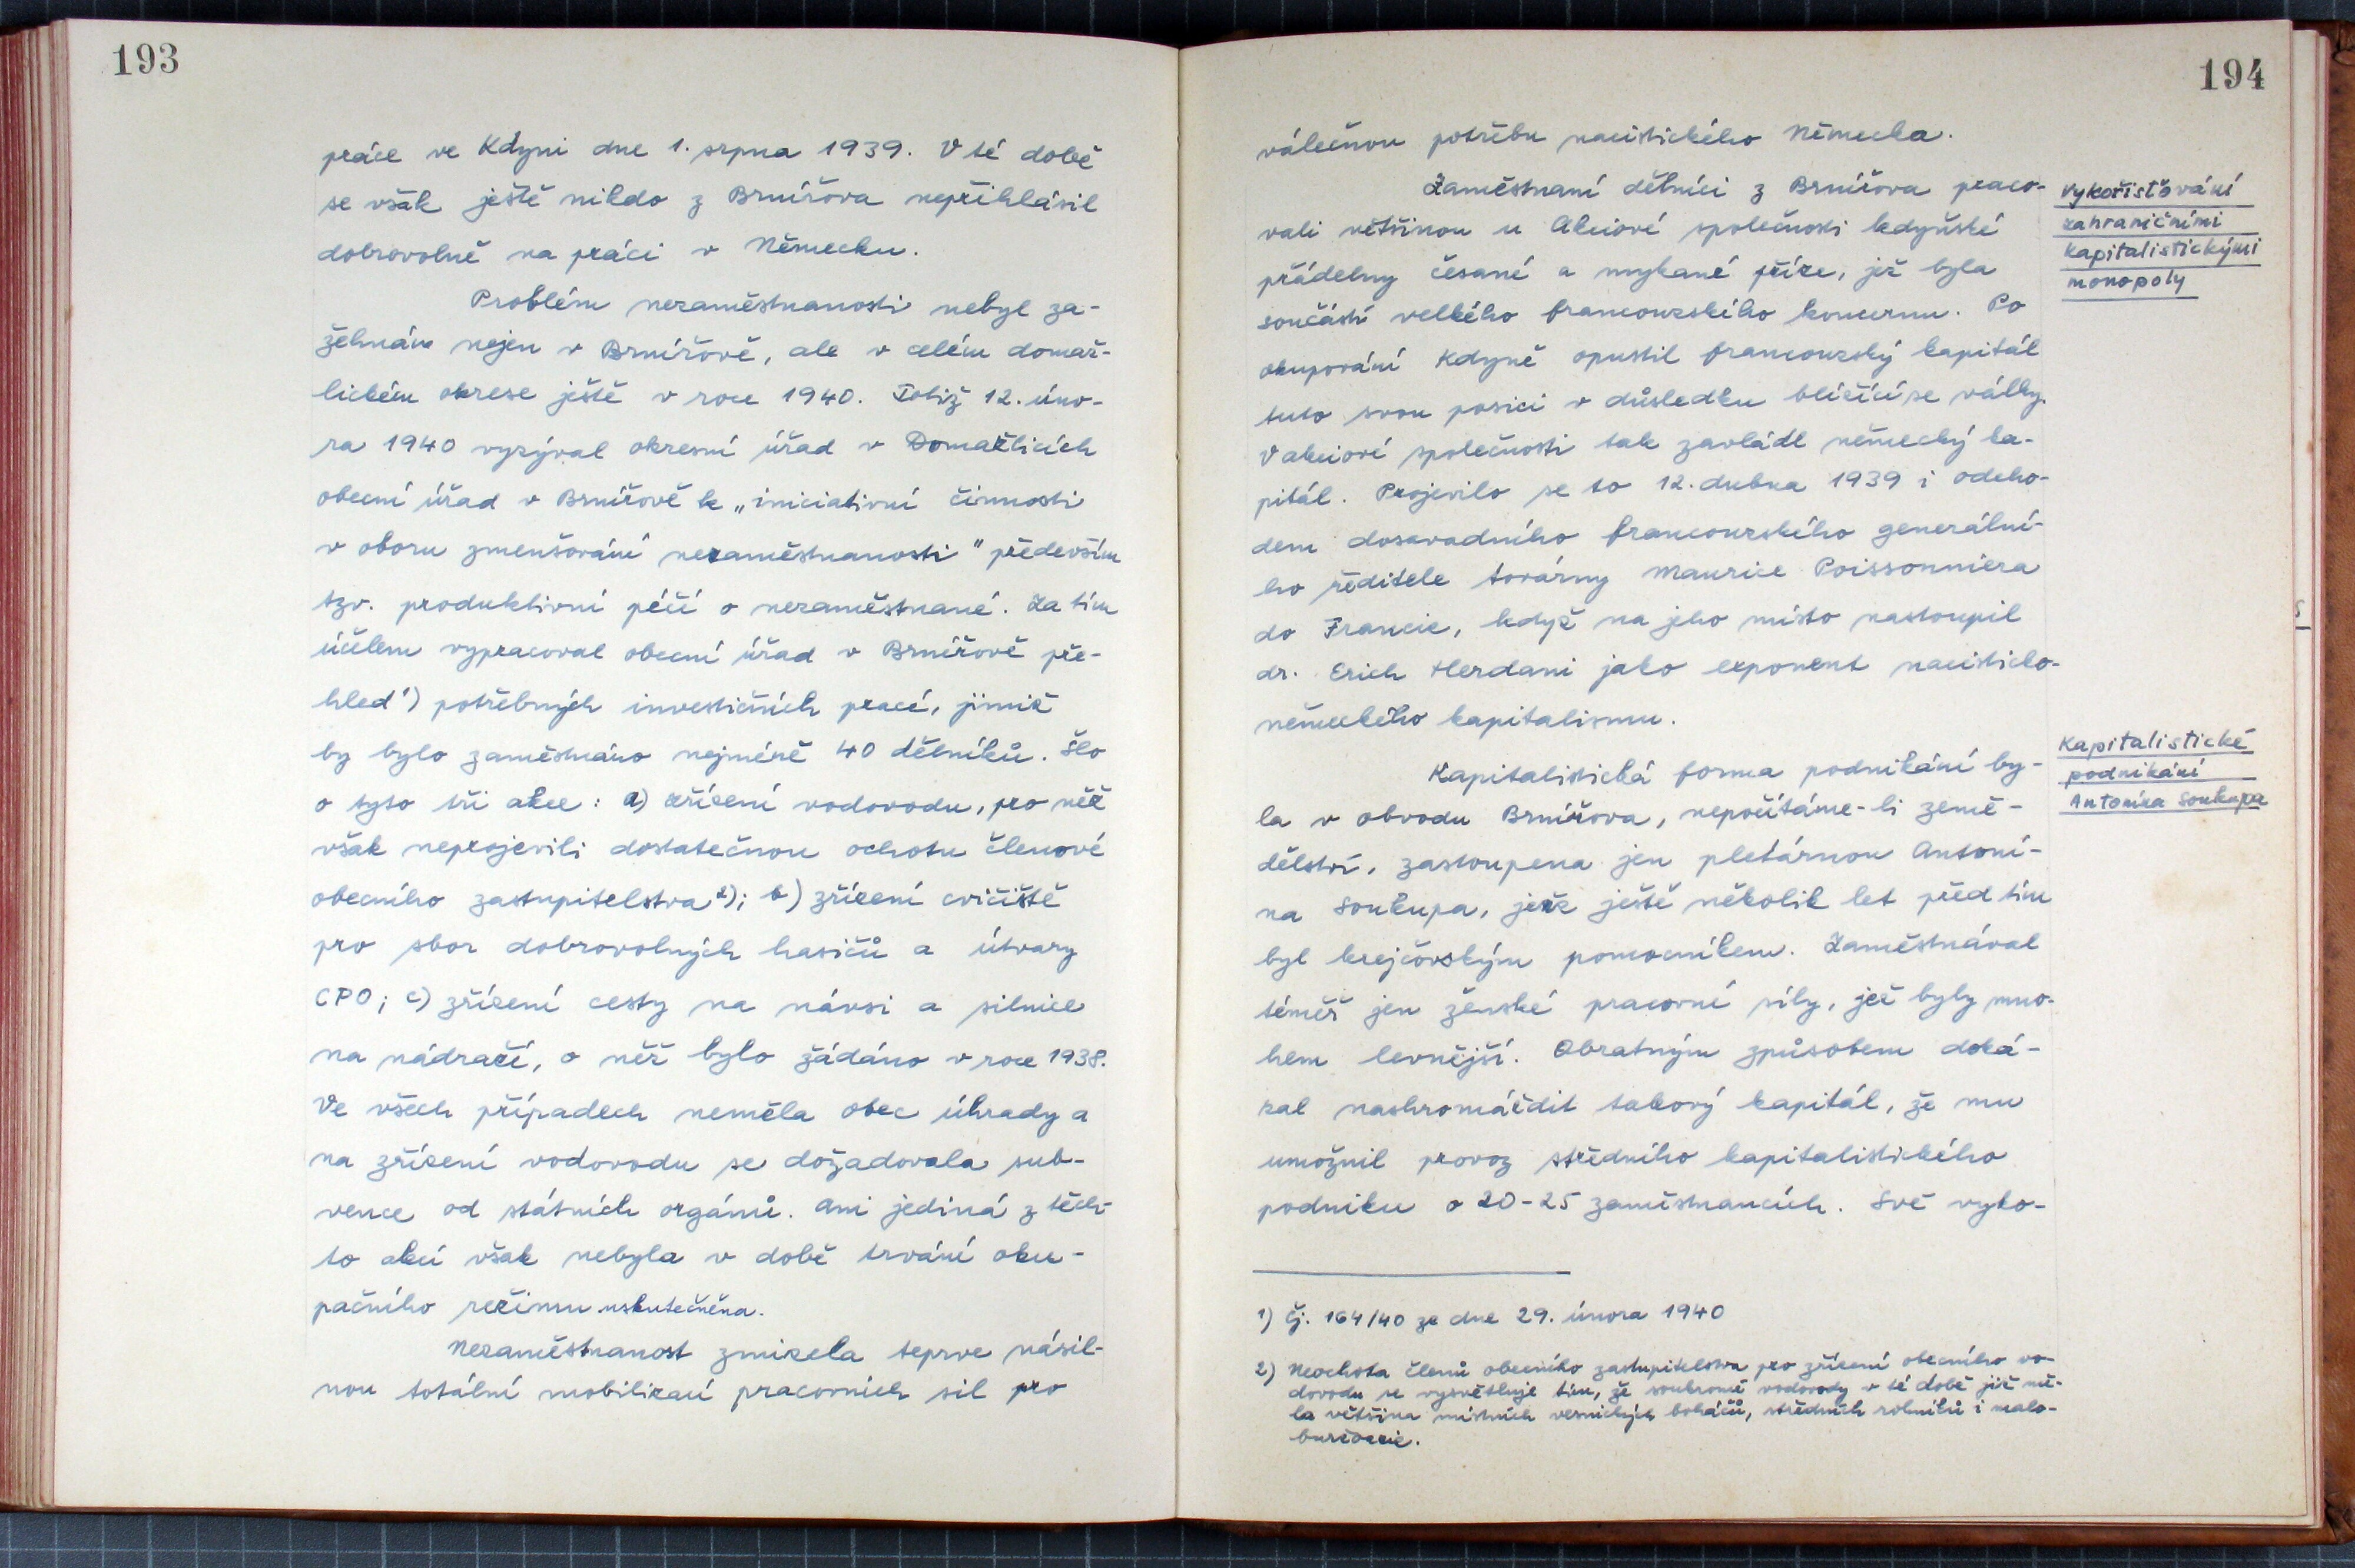 193
práce ve Kdyni dne 1. srpna 1939. V té době
se však ještě nikdo z Brnířova nepřihlásil
dobrovolně na práci v Německu.
Problém nezaměstnanosti nebyl za-
žehnán nejen v Brnířově, ale v celém domaž-
lickém okrese ještě v roce 1940. Totiž 12. úno-
ra 1940 vyzýval okresní úřad v Domažlicích
obecní úřad v Brnířově k „iniciativní činnosti
v oboru zmenšování nezaměstnanosti" především
tzv. produktivní péčí o nezaměstnané. Za tím
účelem vypracoval obecní úřad v Brnířově pře-
hled 1) potřebných investičních prací, jimiž
by bylo zaměstnáno nejméně 40 dělníků. Šlo
o tyto tři akce: a) zřízení vodovodu, pro něž
však neprojevili dostatečnou ochotu členové
obecního zastupitelstva 2); b) zřízení cvičiště
pro sbor dobrovolných hasičů a útvary
CPO; c) zřízení cesty na návsi a silnice
na nádraží, o něž bylo žádáno v roce 1938.
Ve všech případech neměla obec úhrady a
na zřízení vodovodu se dožadovala sub-
vence od státních orgánů. Ani jediná z těch-
to akcí však nebyla v době trvání oku-
pačního režimu uskutečněna.
Nezaměstnanost zmizela teprve násil-
nou totální mobilizací pracovních sil pro
194
válečnou potřebu nacistického Německa.
Zaměstnaní dělníci z Brnířova praco-
vali většinou u Akciové společnosti kdyňské
přádelny česané a mykané příze, jež byla
součástí velkého francouzského koncernu. Po
okupování Kdyně opustil francouzský kapitál
tuto svou posici v důsledku blížící se války.
V akciové společnosti tak zavládl německý ka-
pitál. Projevilo se to 12. dubna 1939 i odcho-
dem dosavadního francouzského generální-
ho ředitele továrny Maurice Poissonniera
do Francie, když na jeho místo nastoupil
dr. Erich Herdani jako exponent nacisticko-
německého kapitalismu.
Kapitalistická forma podnikání by-
la v obvodu Brnířova, nepočítáme-li země-
dělství, zastoupena jen pletárnou Antoní-
na Soukupa, jenž ještě několik let před tím
byl krejčovským pomocníkem. Zaměstnával
téměř jen ženské pracovní síly, jež byly mno-
hem levnější. Obratným způsobem doká-
zal nashromáždit takový kapitál, že mu
umožnil provoz středního kapitalistického
podniku o 20-25 zaměstnancích. Své vyko-
vykořisťování
zahraničními
kapitalistickými
monopoly
Kapitalistické
podnikání
Antonína Soukupa
1) Čj. 164/40 ze dne 29. února 1940
2) Neochota členů obecního zastupitelstva pro zřízení obecního vo-
dovodu se vysvětluje tím, že soukromé vodovody v té době již mě-
la většina místních vesnických boháčů, středních rolníků i malo-
buržoazie.